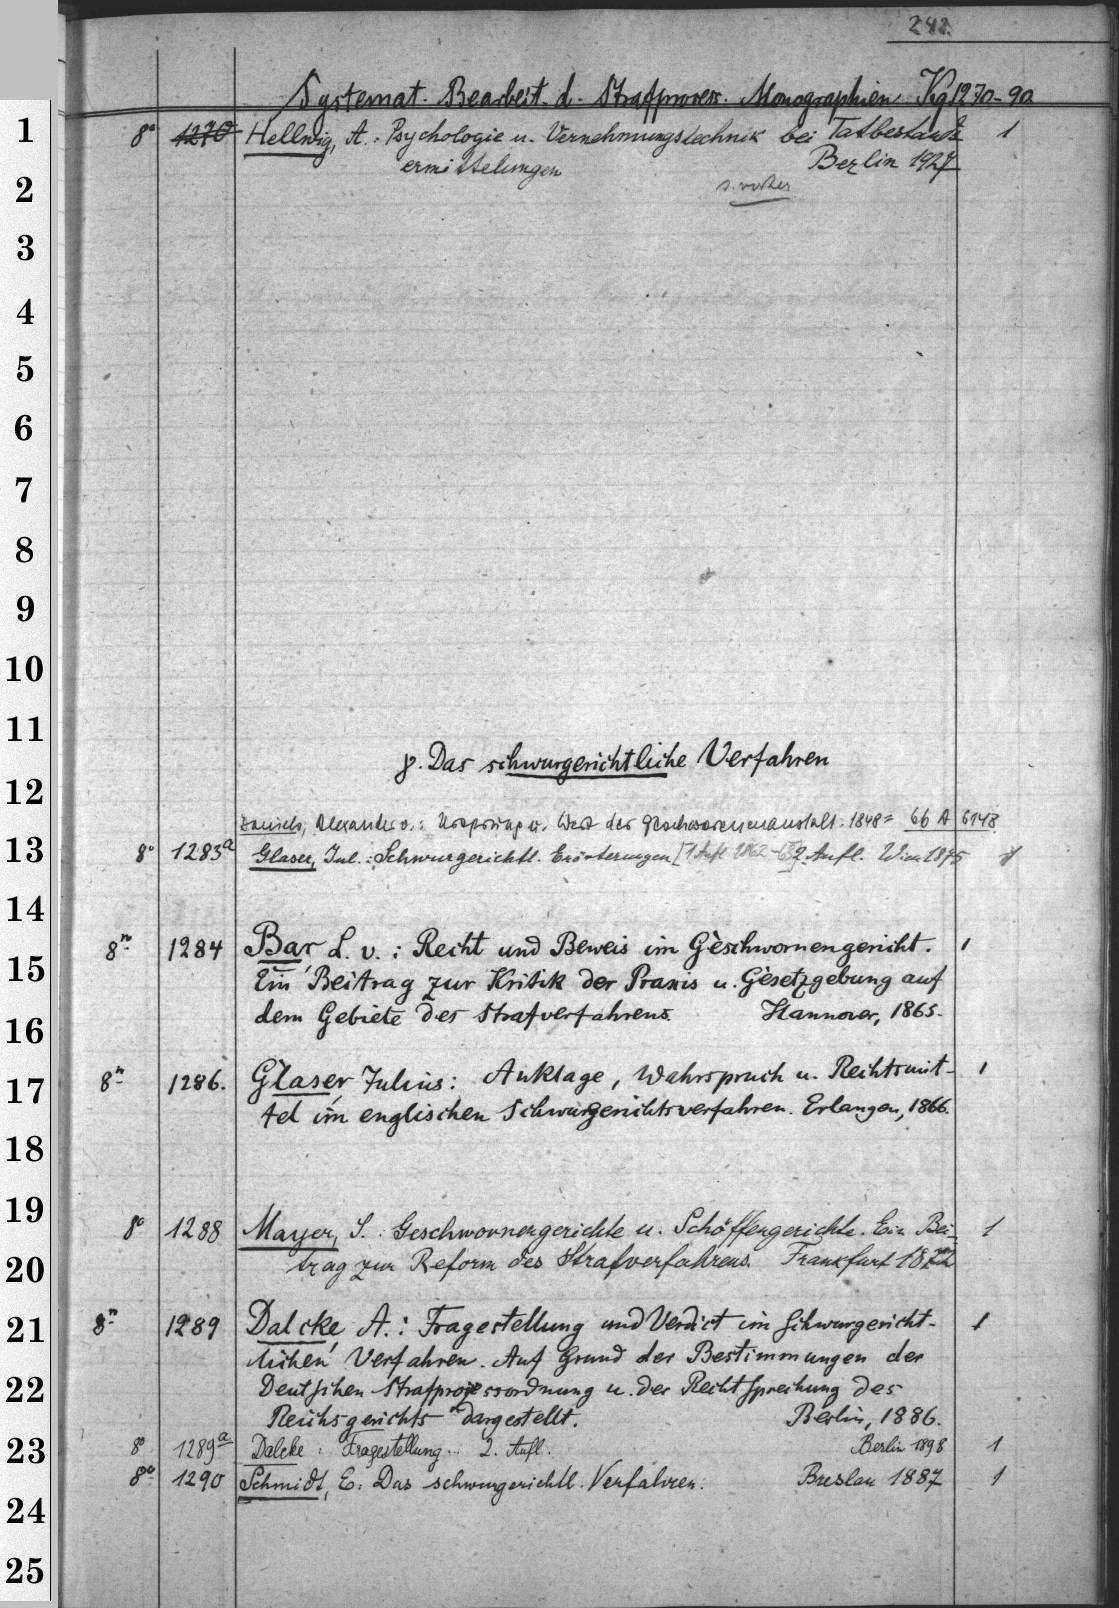 242.
Systemat. Bearbeit. d. Strafprozess. Monographien Kg 1270-90
1 8° 1270 Hellwig, A.: Psychologie u. Vernehmungstechnik bei Tatbestands 1
ermittelungen Berlin 1927
2 s. vorher
3
4
5
6
7
8
9
10
11
γ. Das schwurgerichtliche Verfahren
12
Alexander v.: Ursprung u. Wert der Geschworenenanstalt. 1848 = 66 A 6148
13 8° 1283a Glaser, Jul.: Schwurgerichtl. Erörterungen [1 Aufl. 2. Aufl. Wien 1875 1
14
8° 1284 Bar L. v.: Recht und Beweis im Geschwornengericht. 1
15 Ein Beitrag zur Kritik der Praxis u. Gesetzgebung auf
16 dem Gebiete des Strafverfahrens. Hannover, 1865.
17 8° 1286. Glaser Julius: Anklage, Wahrspruch u. Rechtsmit- 1
tel im englischen Schwurgerichtsverfahren. Erlangen, 1866.
18
19 8° 1288 Mayer, S. Geschwornengerichte u. Schöffengerichte. Ein Bei- 1
20 trag zur Reform des Strafverfahrens. Frankfurt 1872
21 8° 1289 Dalcke A.: Fragestellung und Verdict im schwurgericht- 1
lichen Verfahren. Auf Grund der Bestimmungen der
22 Deutschen Strafprozessordnung u. der Rechtsprechung des
Reichsgerichts dargestellt. Berlin, 1886.
23 8° 1289a Dalcke: Fragestellung... 2. Aufl. Berlin 1898 1
8° 1290 Schmidt, E. Das schwurgerichtl. Verfahren. Breslau 1887 1
24
25